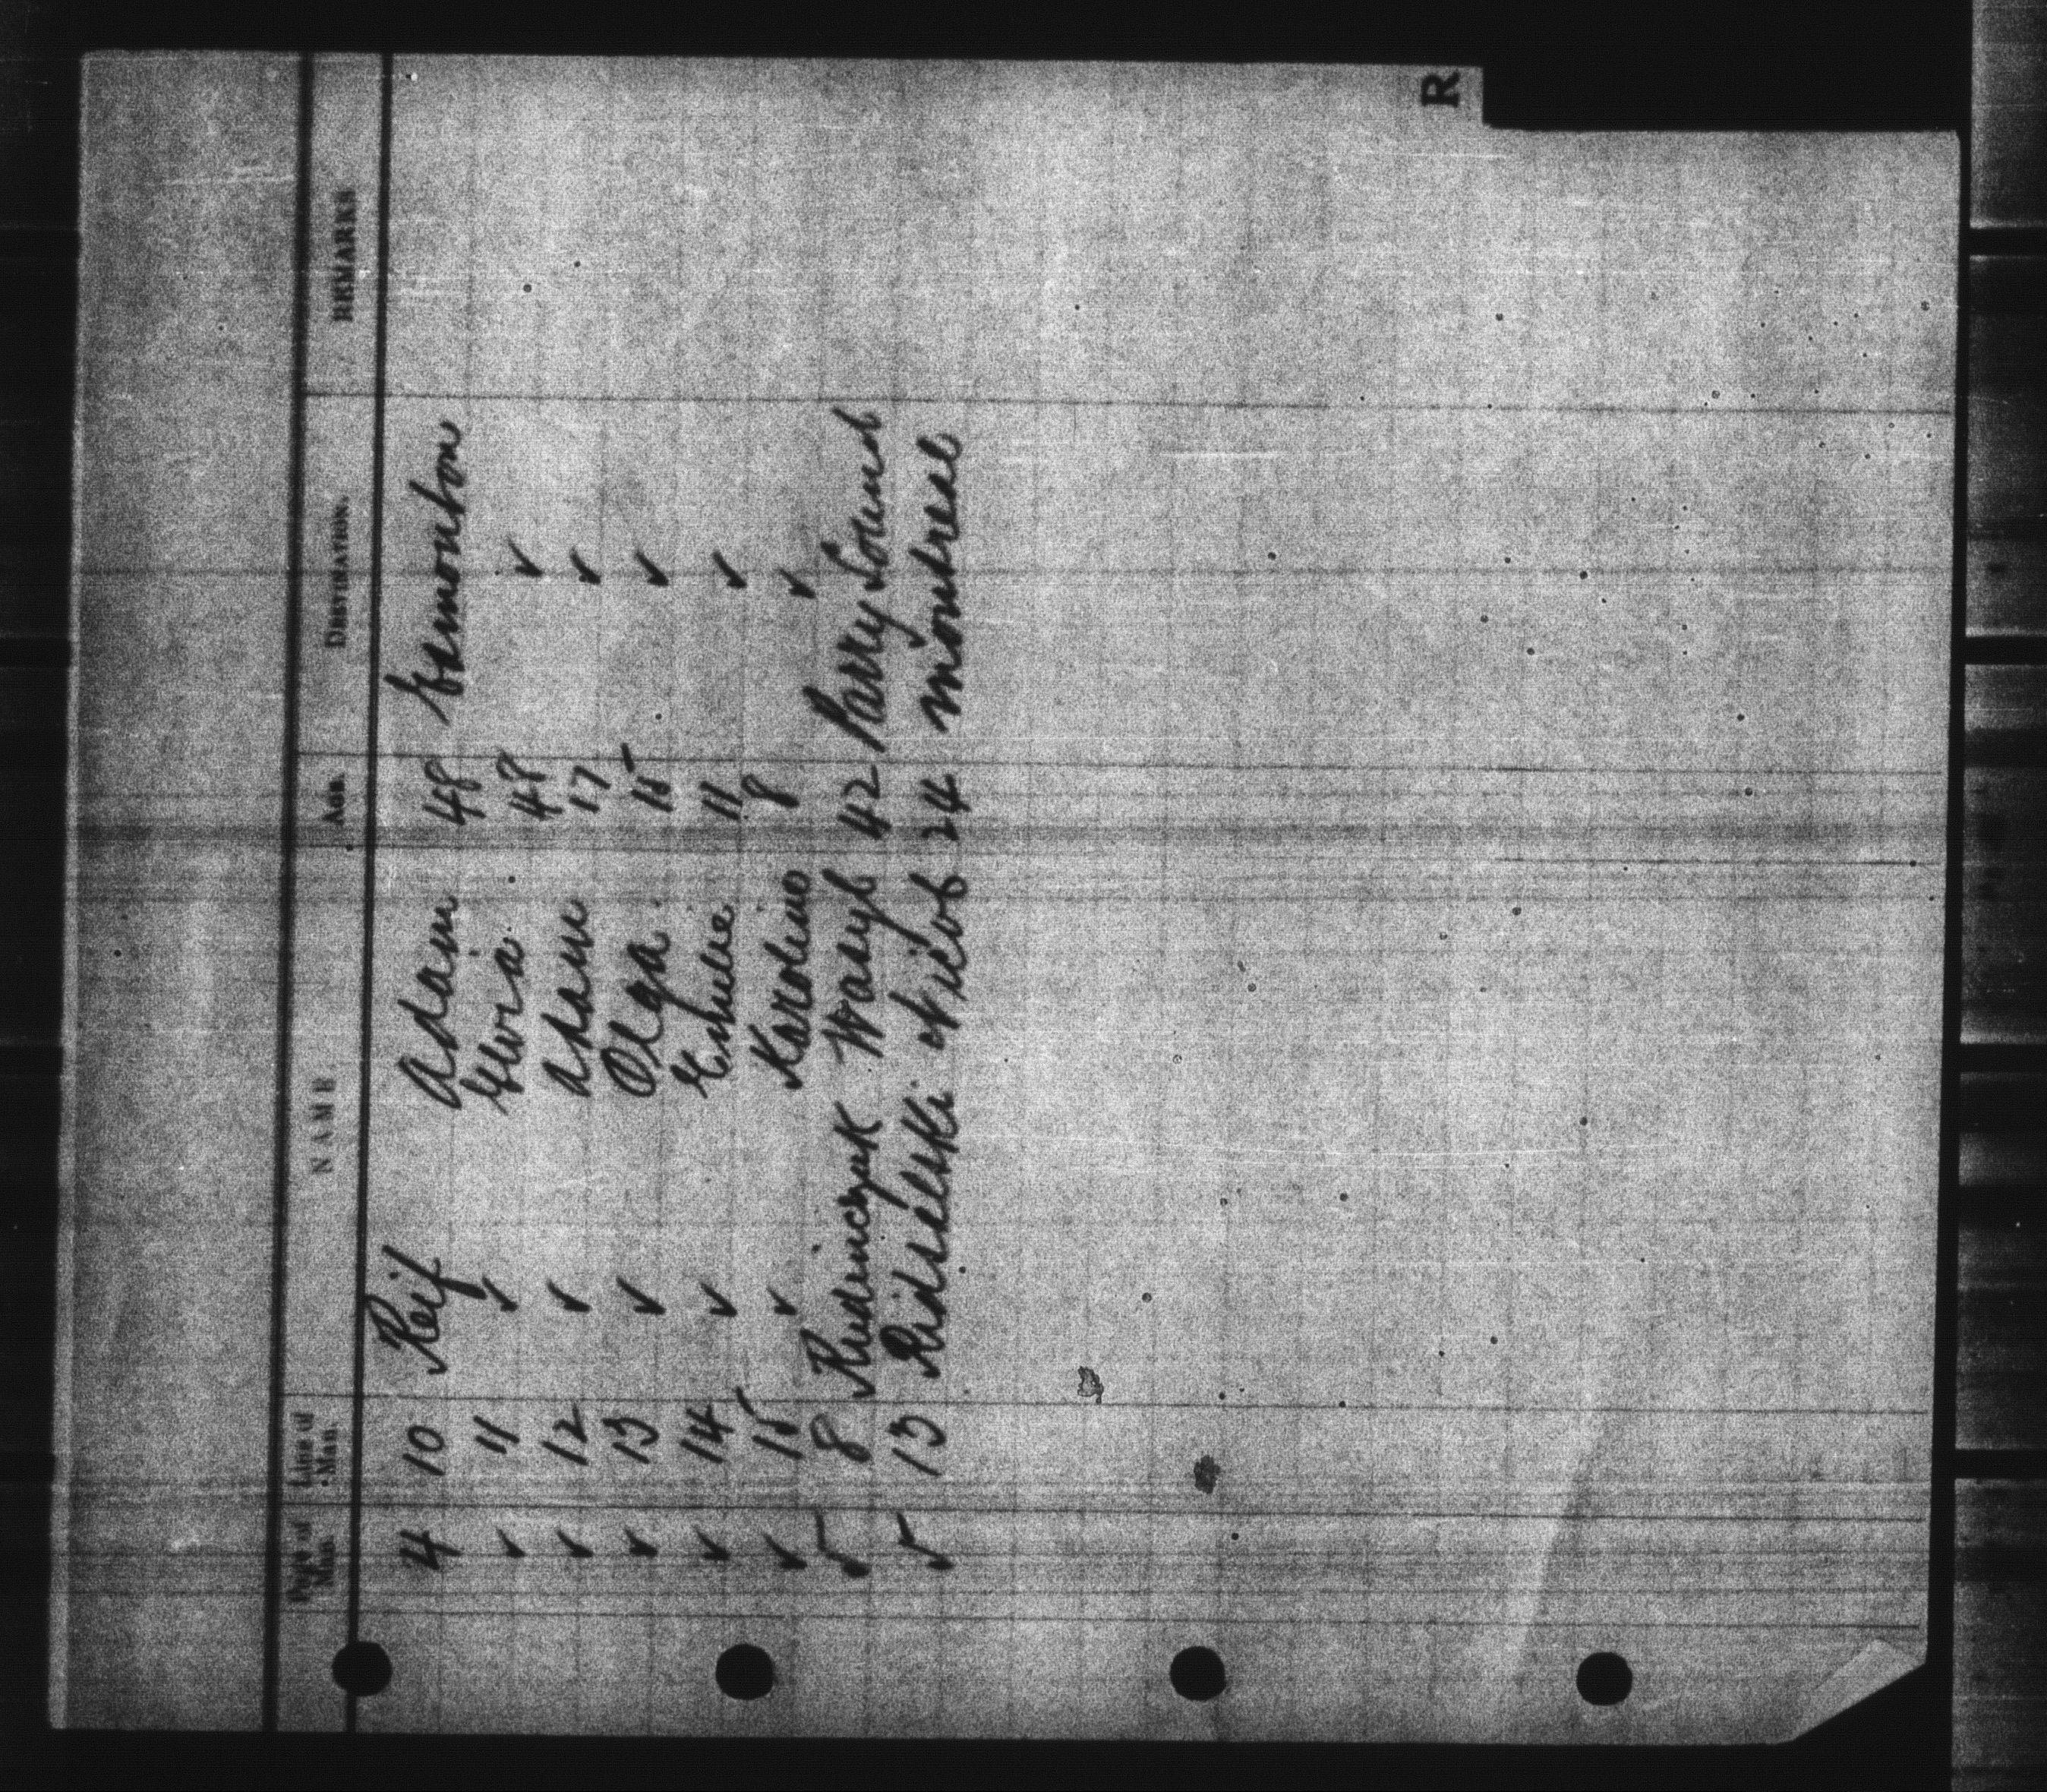 R
Page of Man. Line of Man. NAME. AGE. DESTINATION. REMARKS
4 10 Reif Adam 48 Edmonton
✓ 11 ✓ Elvira 48 ✓
✓ 12 ✓ Adam 17 ✓
✓ 13 ✓ Olga 15 ✓
✓ 14 ✓ 11 ✓
✓ 15 ✓ Karolino 8 ✓
5 8 Rudeinczuk Wasyl 42 Parry Sound
5 13 24 Montreal